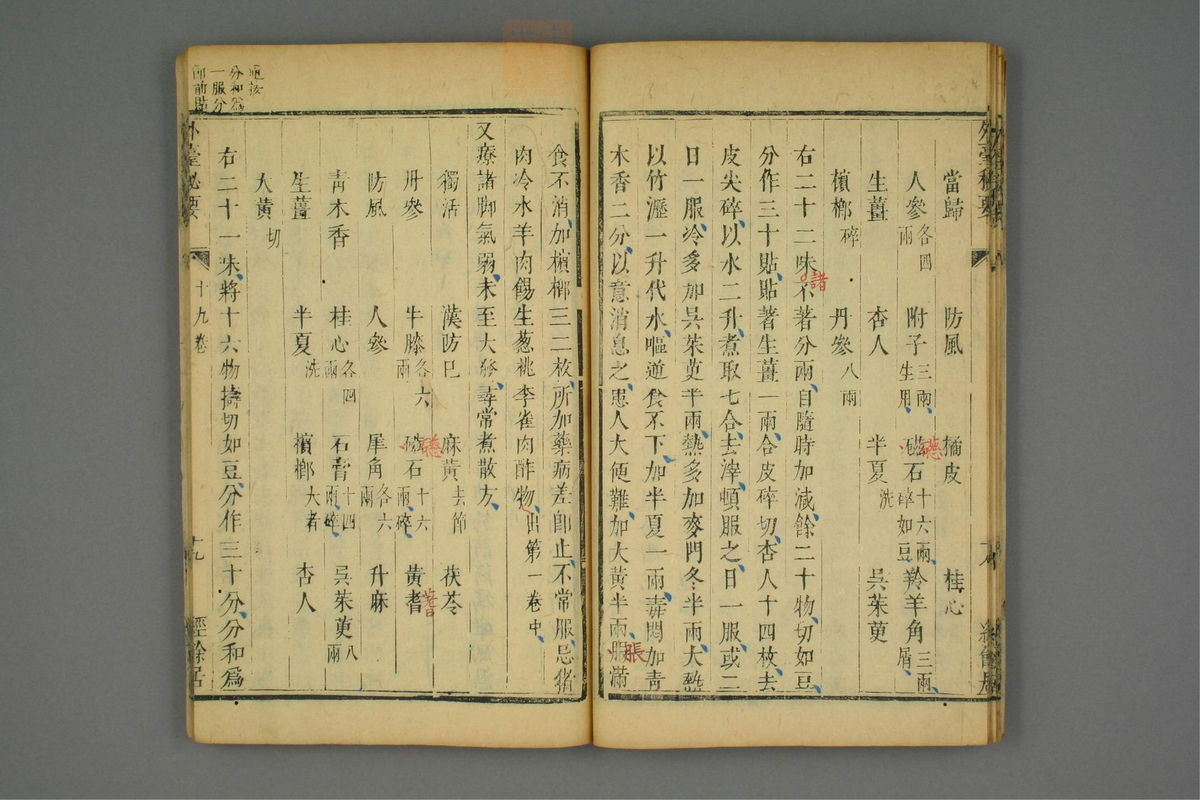 外臺秘要
當歸 防風 橘皮 桂心
人參各四兩 附子三兩生用 磁石十六兩碎如豆 羚羊角三兩屑
生薑 杏人 半夏洗 吳茱萸
檳榔碎 丹參八兩
右二十二味不著分兩自隨時加減餘二十物切如豆
諸
分作三十貼貼著生薑一兩合皮碎切杏人十四枚去
皮尖碎以水二升煮取七合去滓頓服之日一服或二
日一服冷多加吳茱萸半兩熱多加麥門冬半兩大熱
以竹瀝一升代水嘔逆食不下加半夏一兩毒悶加青
木香二分以意消息之患人大便難加大黃半兩脹滿
脹
食不消加檳榔三二枚所加藥病差即止不常服忌豬
肉冷水羊肉餳生葱桃李雀肉酢物出第一卷中
又療諸脚氣弱未至大發尋常煮散方
獨活 漢防巳 麻黃去節 茯苓
丹參 牛膝各六兩 磁石十六兩碎 黃耆
防風 人參 犀角各六兩 升麻
青木香 桂心各四兩 石膏十四兩碎 吳茱萸八兩
生薑 半夏洗 檳榔大者 杏人
大黃切
右二十一味將十六物擣切如豆分作三十分分和爲
外臺秘要 十九卷 十九 經餘居
分和爲
一服分
卽前貼